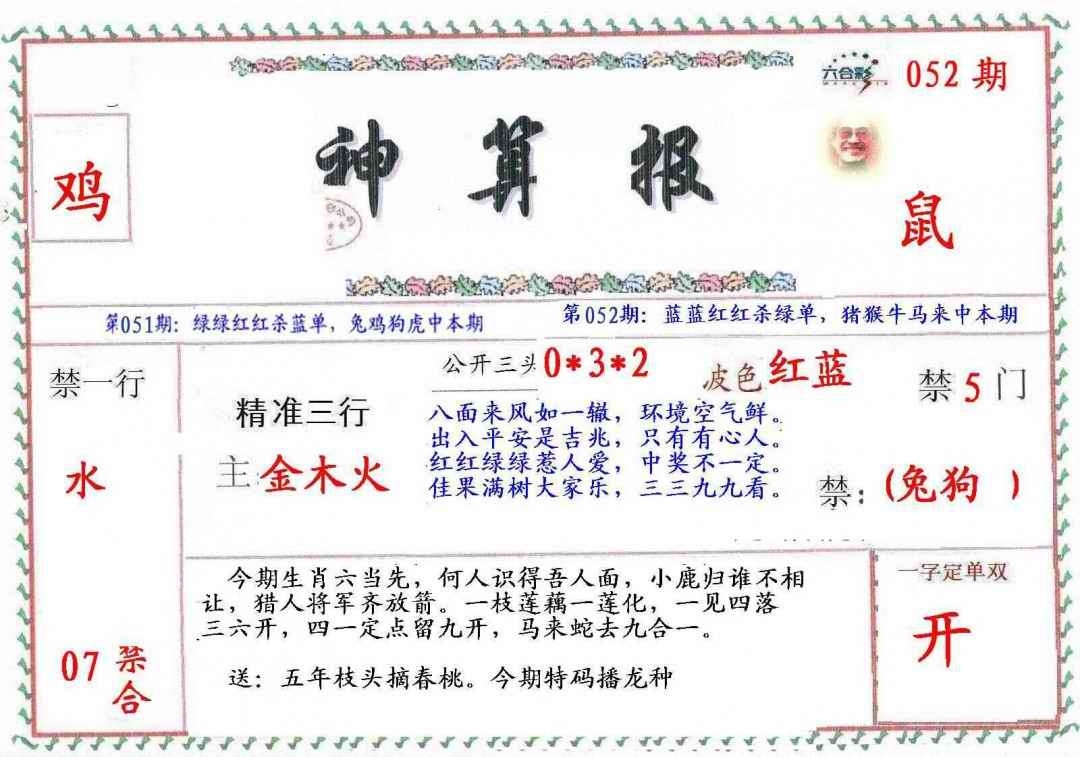 六合彩
052 期
鸡
神算报
鼠
第051期：绿绿红红杀蓝单，兔鸡狗虎中本期
第052期：蓝蓝红红杀绿单，猪猴牛马来中本期
禁一行
水
07 禁
合
精准三行
主:金木火
公开三头 0*3*2
波色 红蓝
八面来风如一辙，环境空气鲜。
出入平安是吉兆，只有有心人。
红红绿绿惹人爱，中奖不一定。
佳果满树大家乐，三三九九看。
禁 5 门
禁：(兔狗 )
今期生肖六当先，何人识得吾人面，小鹿归谁不相
让，猎人将军齐放箭。一枝莲藕一莲化，一见四落
三六开，四一定点留九开，马来蛇去九合一。
送：五年枝头摘春桃。今期特码播龙种
一字定单双
开